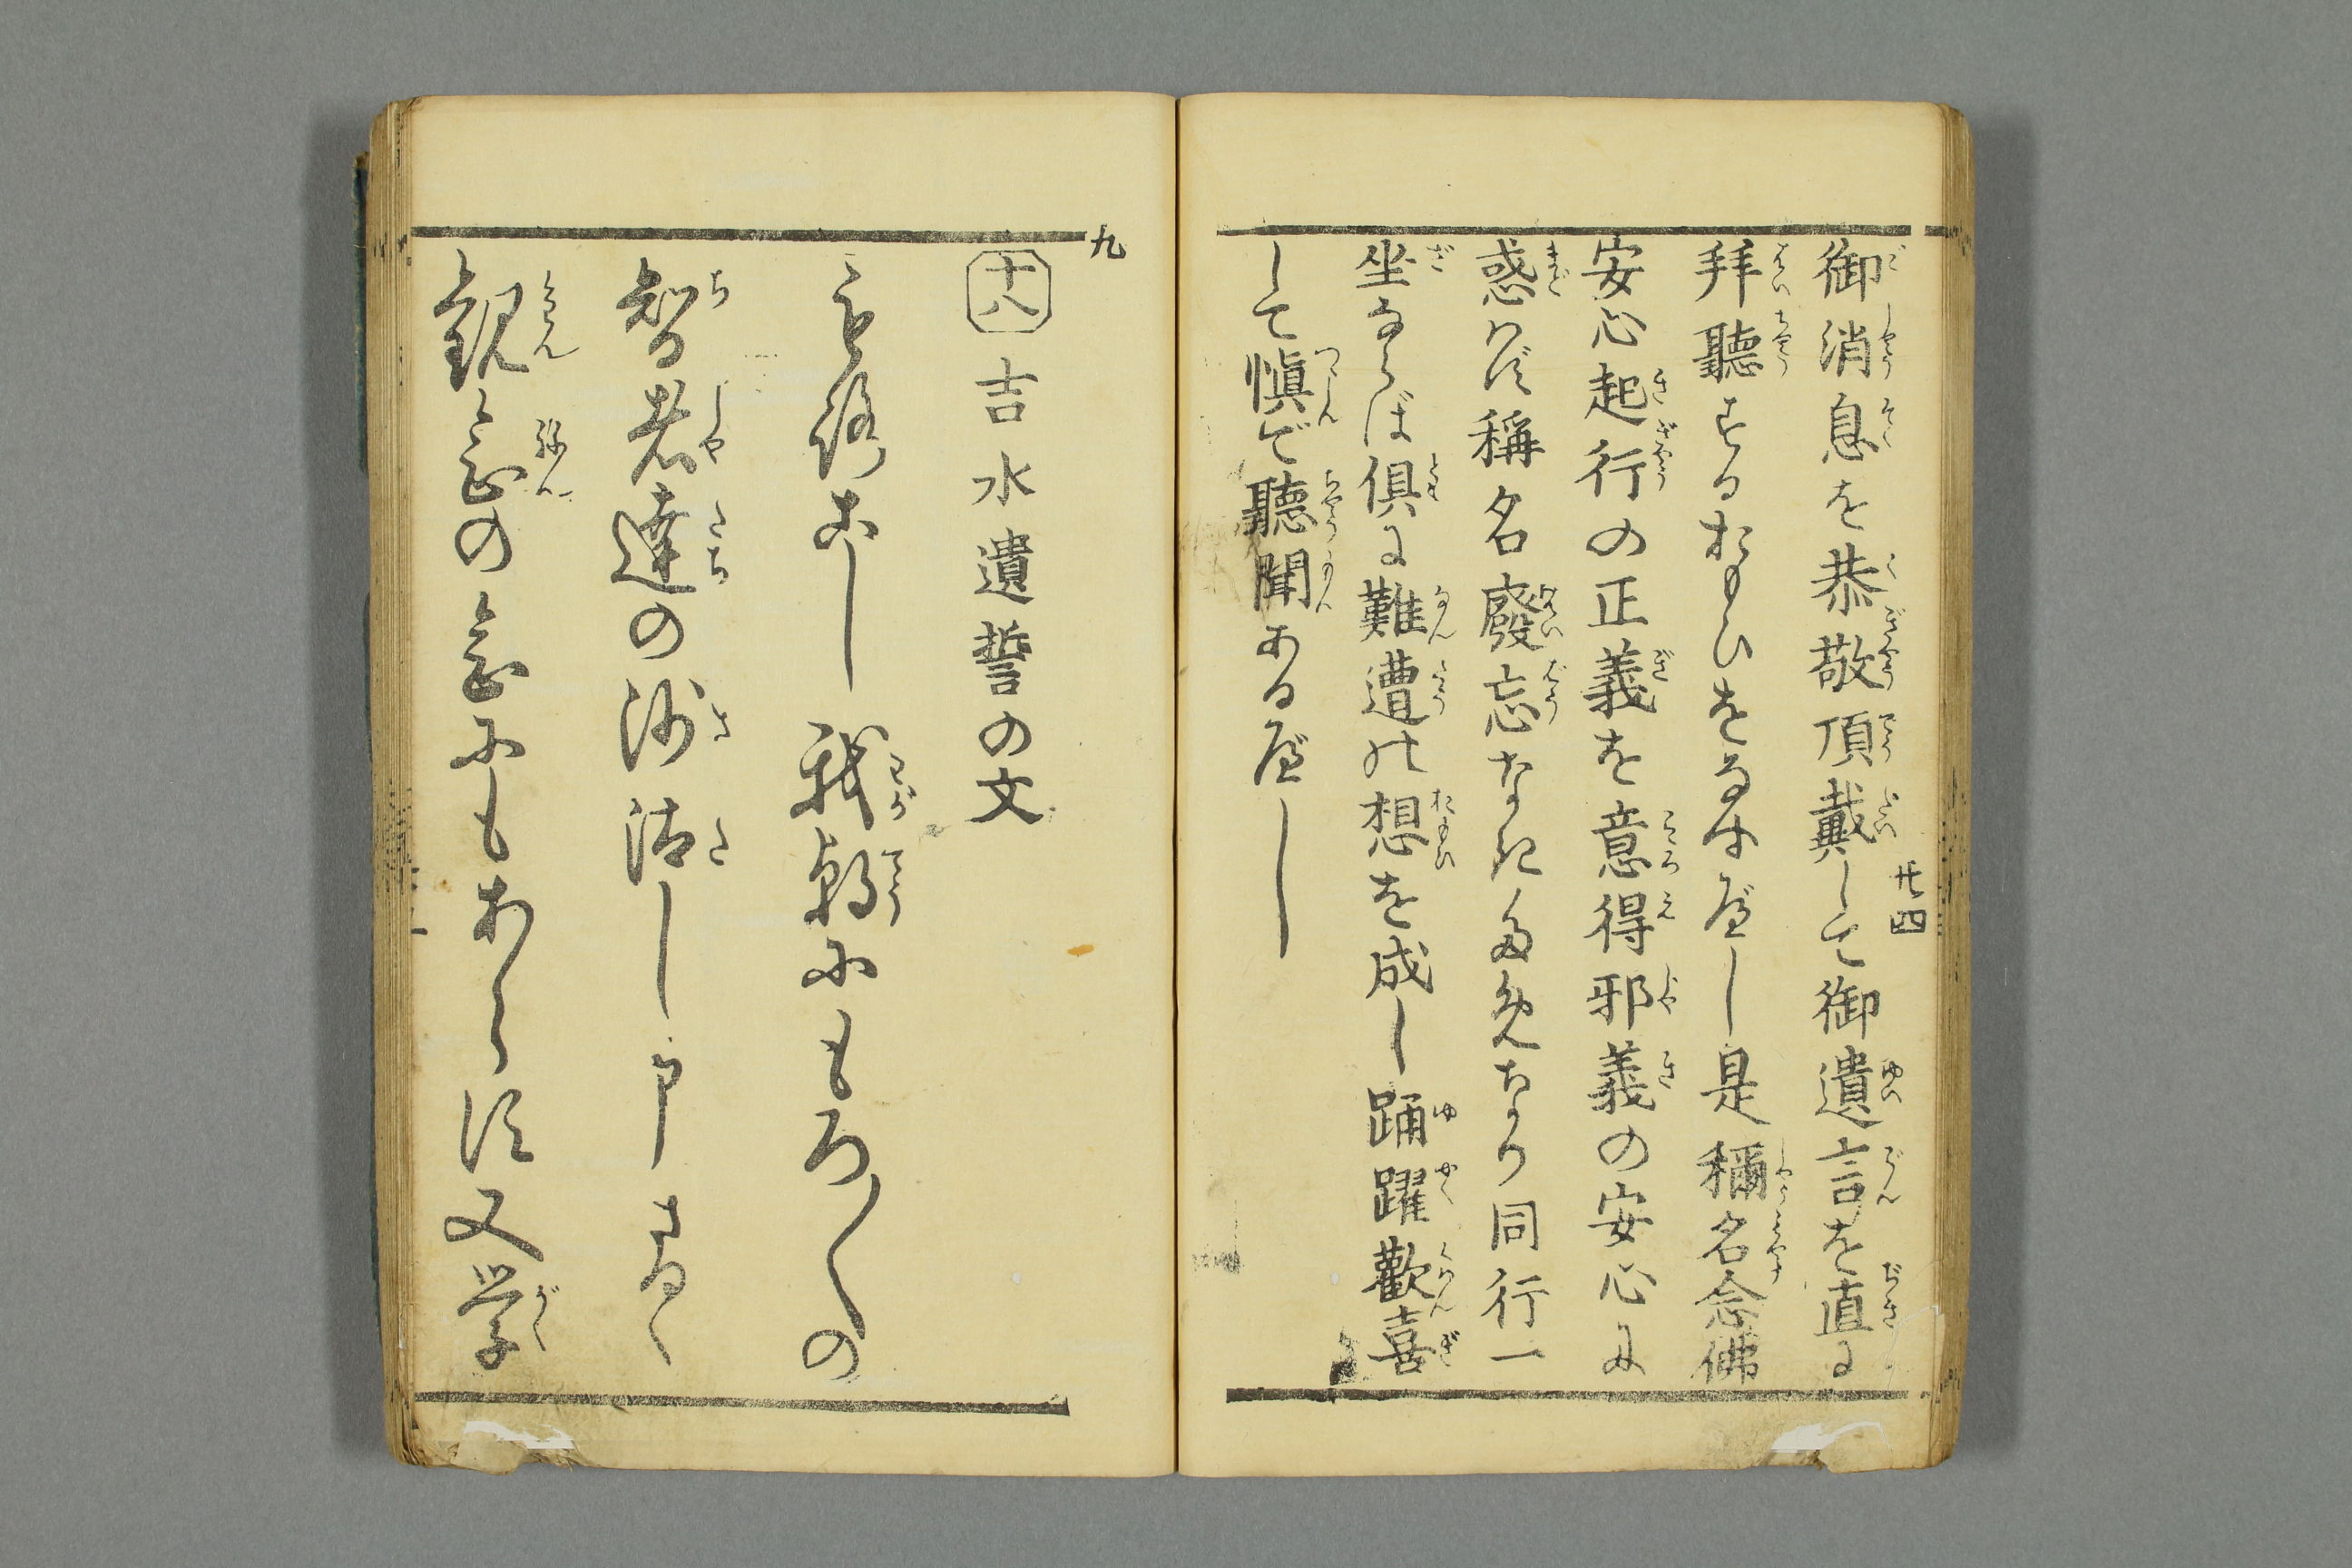 御消息を恭敬頂戴して御遺言を直に
拝聽するおもひをなすべし是稱名念佛
安心起行の正義を意得邪義の安心に
惑はず稱名廢忘なきためなり同行一
坐ならば倶に難遭の想を成し踊躍歡喜
して愼で聽聞あるべし
廿四
九
十八 吉水遺誓の文
もろこし我朝にもろ〱の
智者達の沙汰し申さるゝ
観念の念にもあらず又学